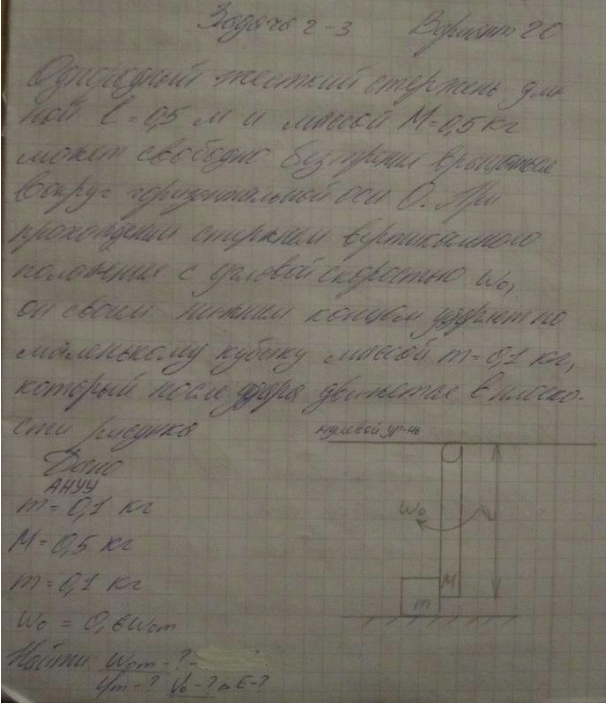 Задача 2-3 Вариант 20
Однородный жесткий стержень дли
ной l = 0,5 м и массой M = 0,5 кг
может свободно без трения вращаться
вокруг горизонтальной оси О. При
прохождении стержнем вертикального
положения с угловой скоростью ω₀,
он своим нижним концом ударяет по
маленькому кубику массой m = 0,1 кг,
который после удара движется в плоско-
сти рисунка
нулевой ур-нь
Дано
АНУУ
m = 0,1 кг
M = 0,5 кг
m = 0,1 кг
ω₀ = 0,6ω₀m
ω₀
M
m
Найти: ω₀m - ?
φm - ? V₀ - ? ΔE - ?